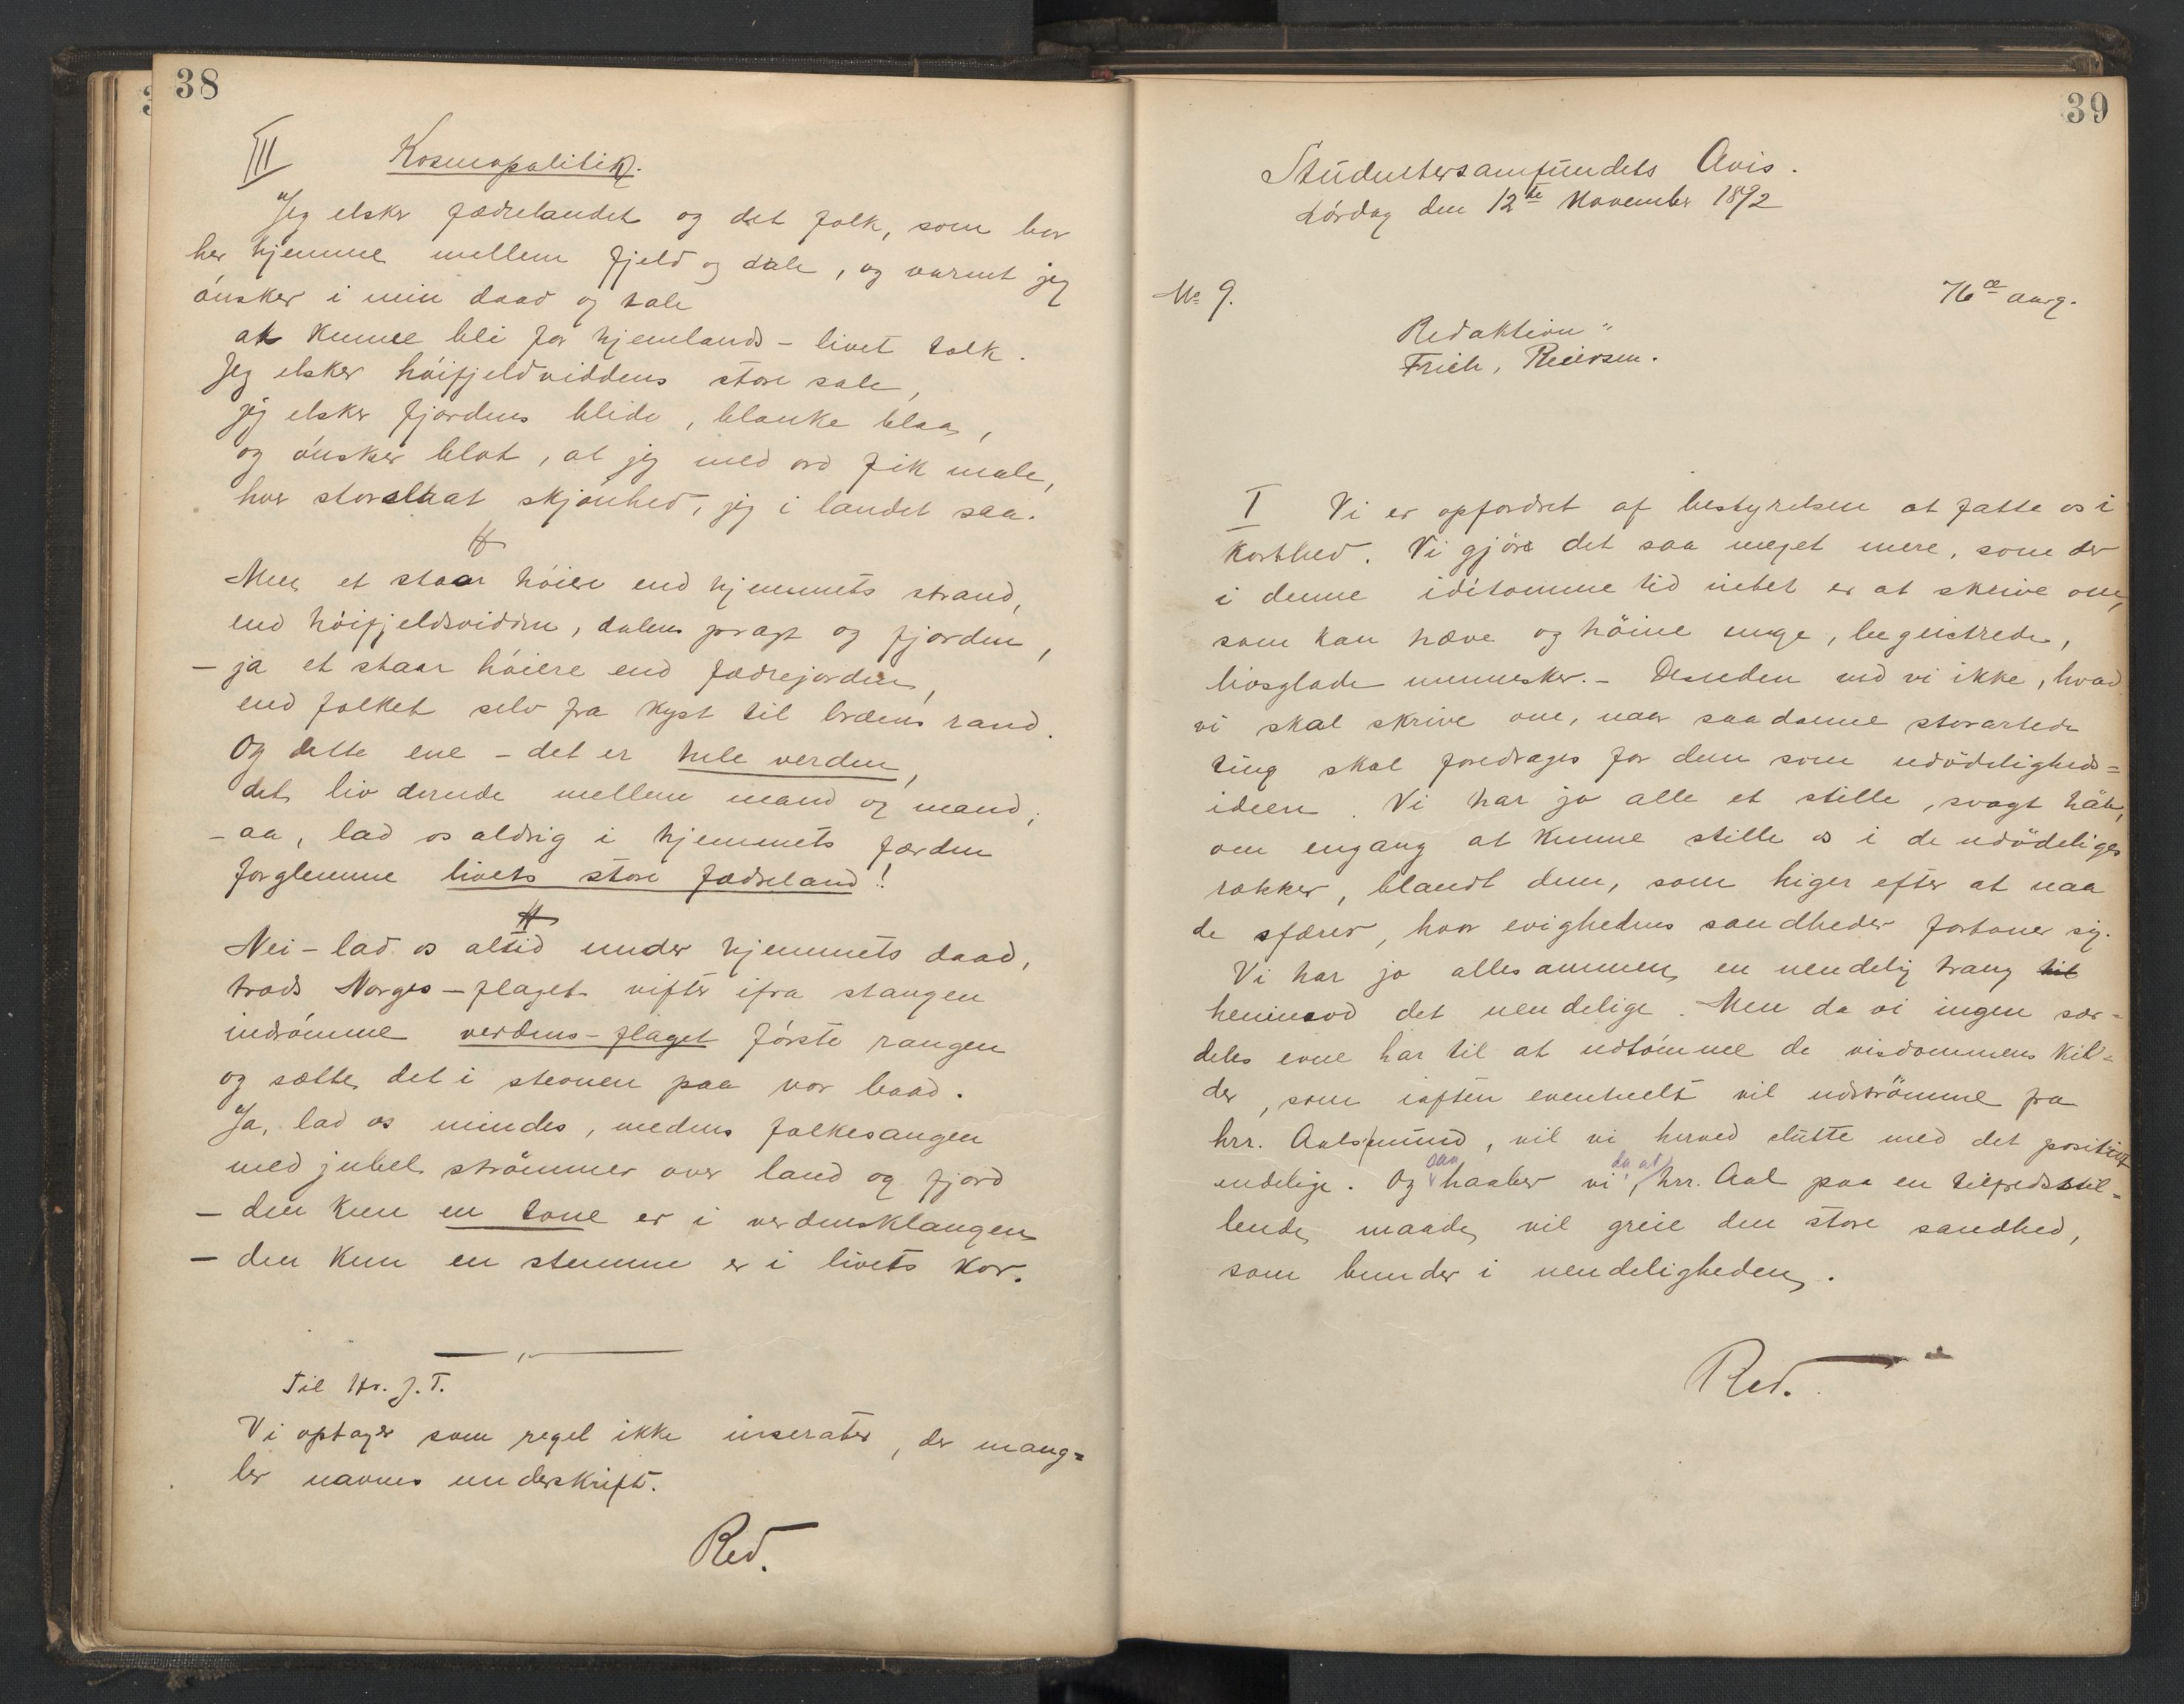 38
III Kosmopolitik.
Jeg elsker fædrelandet og det folk, som bor
her hjemme mellem fjeld og dale, og varmt jeg
ønsker i min daad og tale
at kunne bli for hjemlands-livet tolk.
Jeg elsker høifjeldviddens store sale,
jeg elsker fjordens blide, blanke blaa,
og ønsker blot, at jeg med ord fik male,
hvor storslaat skjønhed, jeg i landet saa.
Men et staar høiere end hjemmets strand,
end høifjeldsvidden, dalens pragt og fjorden,
- ja et staar høiere end fædrejorden,
end folket selv fra kyst til bræens rand.
Og dette ene - det er hele verden,
det liv derude mellem mand og mand;
- aa, lad os aldrig i hjemmets færden
forglemme livets store fædreland!
Nei - lad os altid under hjemmets daad,
trods Norges-flaget vifter ifra stangen
indrømme verdens-flaget første rangen
og sætte det i stevnen paa vor baad.
Ja, lad os mindes, medens folkesangen
med jubel strømmer over land og fjord
- den kun en tone er i verdensklangen
- den kun en stemme er i livets kor.
Til Hr. J. T.
Vi optager som regel ikke inserater, der mang=
ler navns underskrift.
Red.
39
Studentersamfundets Avis.
Lørdag den 12te November 1892
No 9.
76de aarg.
Redaktion"
Frich, Reiersen.
I Vi er opfordret af bestyrelsen at fatte os i
korthed. Vi gjöre det saa meget mere, som der
i denne idétomme tid intet er at skrive om,
som kan hæve og höine unge, begeistrede,
livsglade mennesker. - Desuden ved vi ikke, hvad
vi skal skrive om, naar saadanne storartede
ting skal foredrages for dem som udödeligheds=
ideen. Vi har jo alle et stille, svagt håb,
om engang at kunne stille os i de udödeliges
rækker, blandt dem, som higer efter at naa
de sfærer, hvor evighedens sandheder fortoner sig.
Vi har jo allesammen en uendelig trang til
henimod det uendelige. Men da vi ingen sær=
deles evne har til at udtømme de visdommens kil=
der, som iaften eventuelt vil udströmme fra
hrr. Aals mund, vil vi herved slutte med det positivt
endelige. Og saa haaber vi da at, hrr. Aal paa en tilfredsstil=
lende maade vil greie den store sandhed,
som bunder i uendeligheden.
Red.